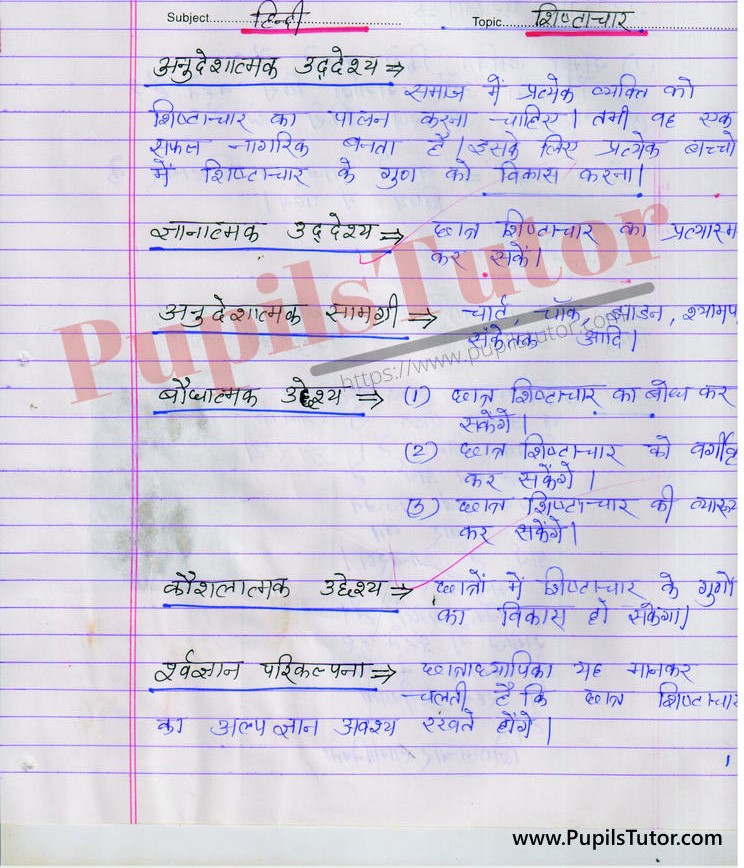 Subject हिन्दी Topic शिष्टाचार
अनुदेशात्मक उद्देश्य ⇒ समाज में प्रत्येक व्यक्ति को
शिष्टाचार का पालन करना चाहिए। तभी वह एक
सफल नागरिक बनता है। इसके लिए प्रत्येक बच्चो
में शिष्टाचार के गुण को विकास करना।
ज्ञानात्मक उद्देश्य ⇒ छात्र शिष्टाचार का प्रत्यास्म
कर सकें।
अनुदेशात्मक सामग्री ⇒ चार्ट, चॉक, झाडन, श्यामप
संकेतक आदि।
बौधात्मक उद्देश्य ⇒ (1) छात्र शिष्टाचार का बोध कर
सकेंगे।
(2) छात्र शिष्टाचार को वर्गीकृ
कर सकेंगे।
(3) छात्र शिष्टाचार की व्याख्
कर सकेंगे।
कौशलात्मक उद्देश्य ⇒ छात्रों में शिष्टाचार के गुणों
का विकास हो सकेगा।
पूर्वज्ञान परिकल्पना ⇒ छात्राध्यापिका यह मानकर
चलती है कि छात्र शिष्टाचार
का अल्प ज्ञान अवश्य रखते होंगे।
1
PupilsTutor
https://www.pupilstutor.com
www.PupilsTutor.com